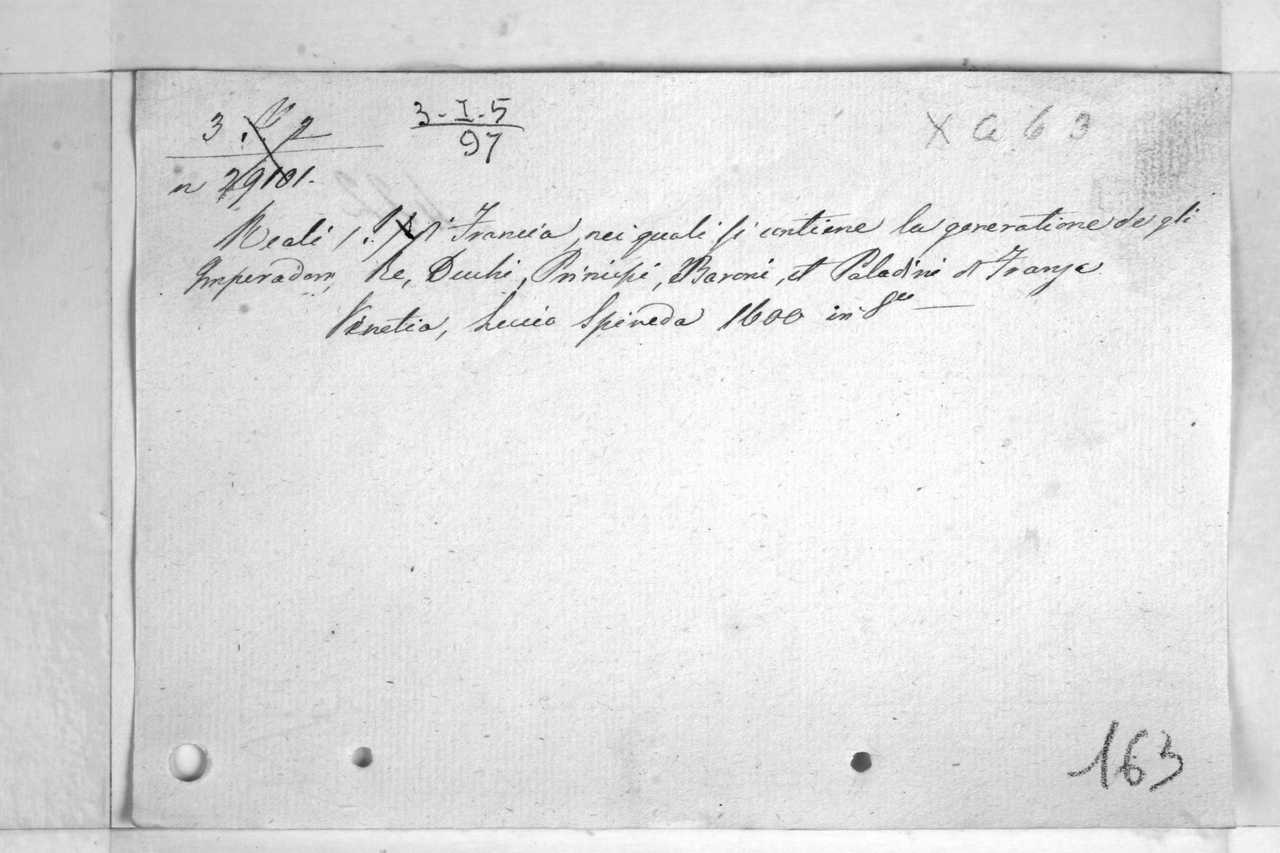 3-I-5
97
X a 6 3
n 29101.
Reali di Francia, nei quali si contiene la generatione de gli
Imperadori, Re, Duchi, Principi, Baroni, et Paladini di Franza
Venetia, Lucio Spineda 1600 in 8vo
163